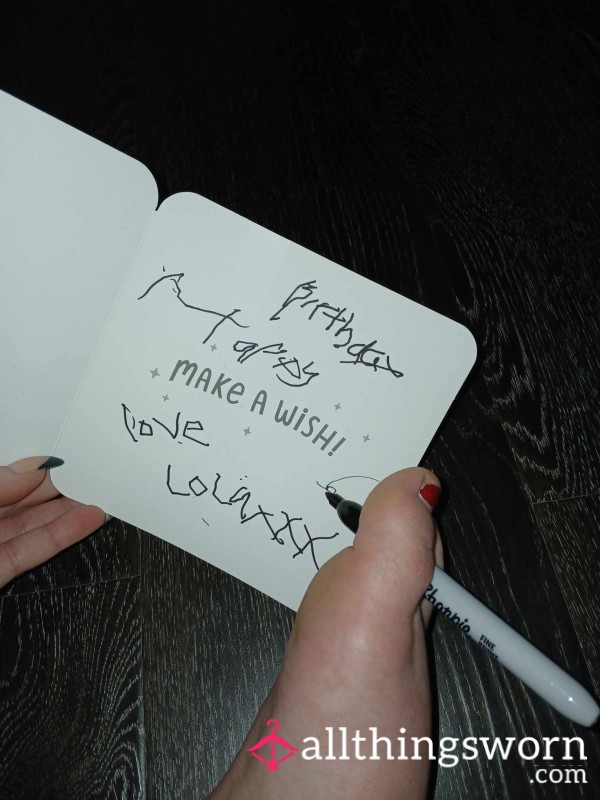 Happy
Birthday
MAKE A WISH!
love
LOLAxxx
Sharpie
FINE
allthingsworn
.com